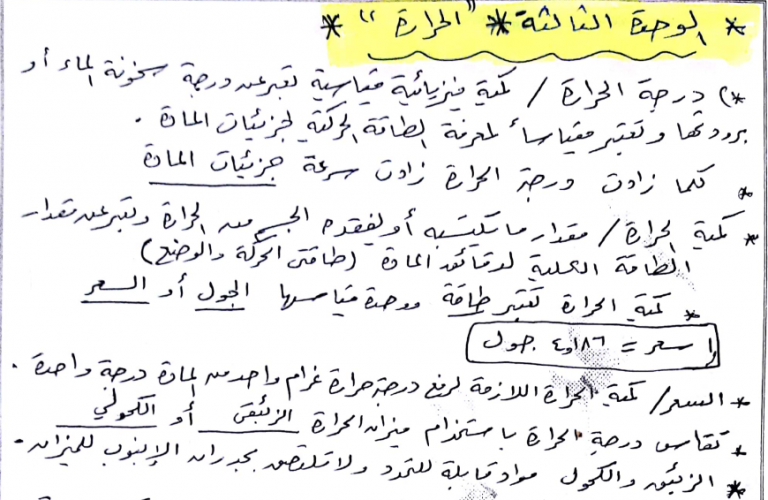 * الوحدة الثالثة * "الحرارة" *
*) درجة الحرارة / كمية فيزيائية قياسية تعبر عن درجة سخونة الماء أو
برودتها وتعتبر مقياساً لمعرفة الطاقة الحركية لجزيئات المادة .
* كلما زادت درجة الحرارة زادت سرعة جزيئات المادة
* كمية الحرارة / مقدار ما يكتسبه أو يفقده الجسم من الحرارة وتعبر عن مقدار
الطاقة الكلية لدقائق المادة (طاقتي الحركة والوضع)
* كمية الحرارة تعتبر طاقة ووحدة قياسها الجول أو السعر
١ سعر = ٤٫١٨٦ جول
* السعر / كمية الحرارة اللازمة لرفع درجة حرارة غرام واحد من المادة درجة واحدة .
* تقاس درجة الحرارة باستخدام ميزان الحرارة الزئبقي أو الكحولي
* الزئبق والكحول مواد قابلة للتمدد ولا تلتصق بجدران الإنبوب للميزان .